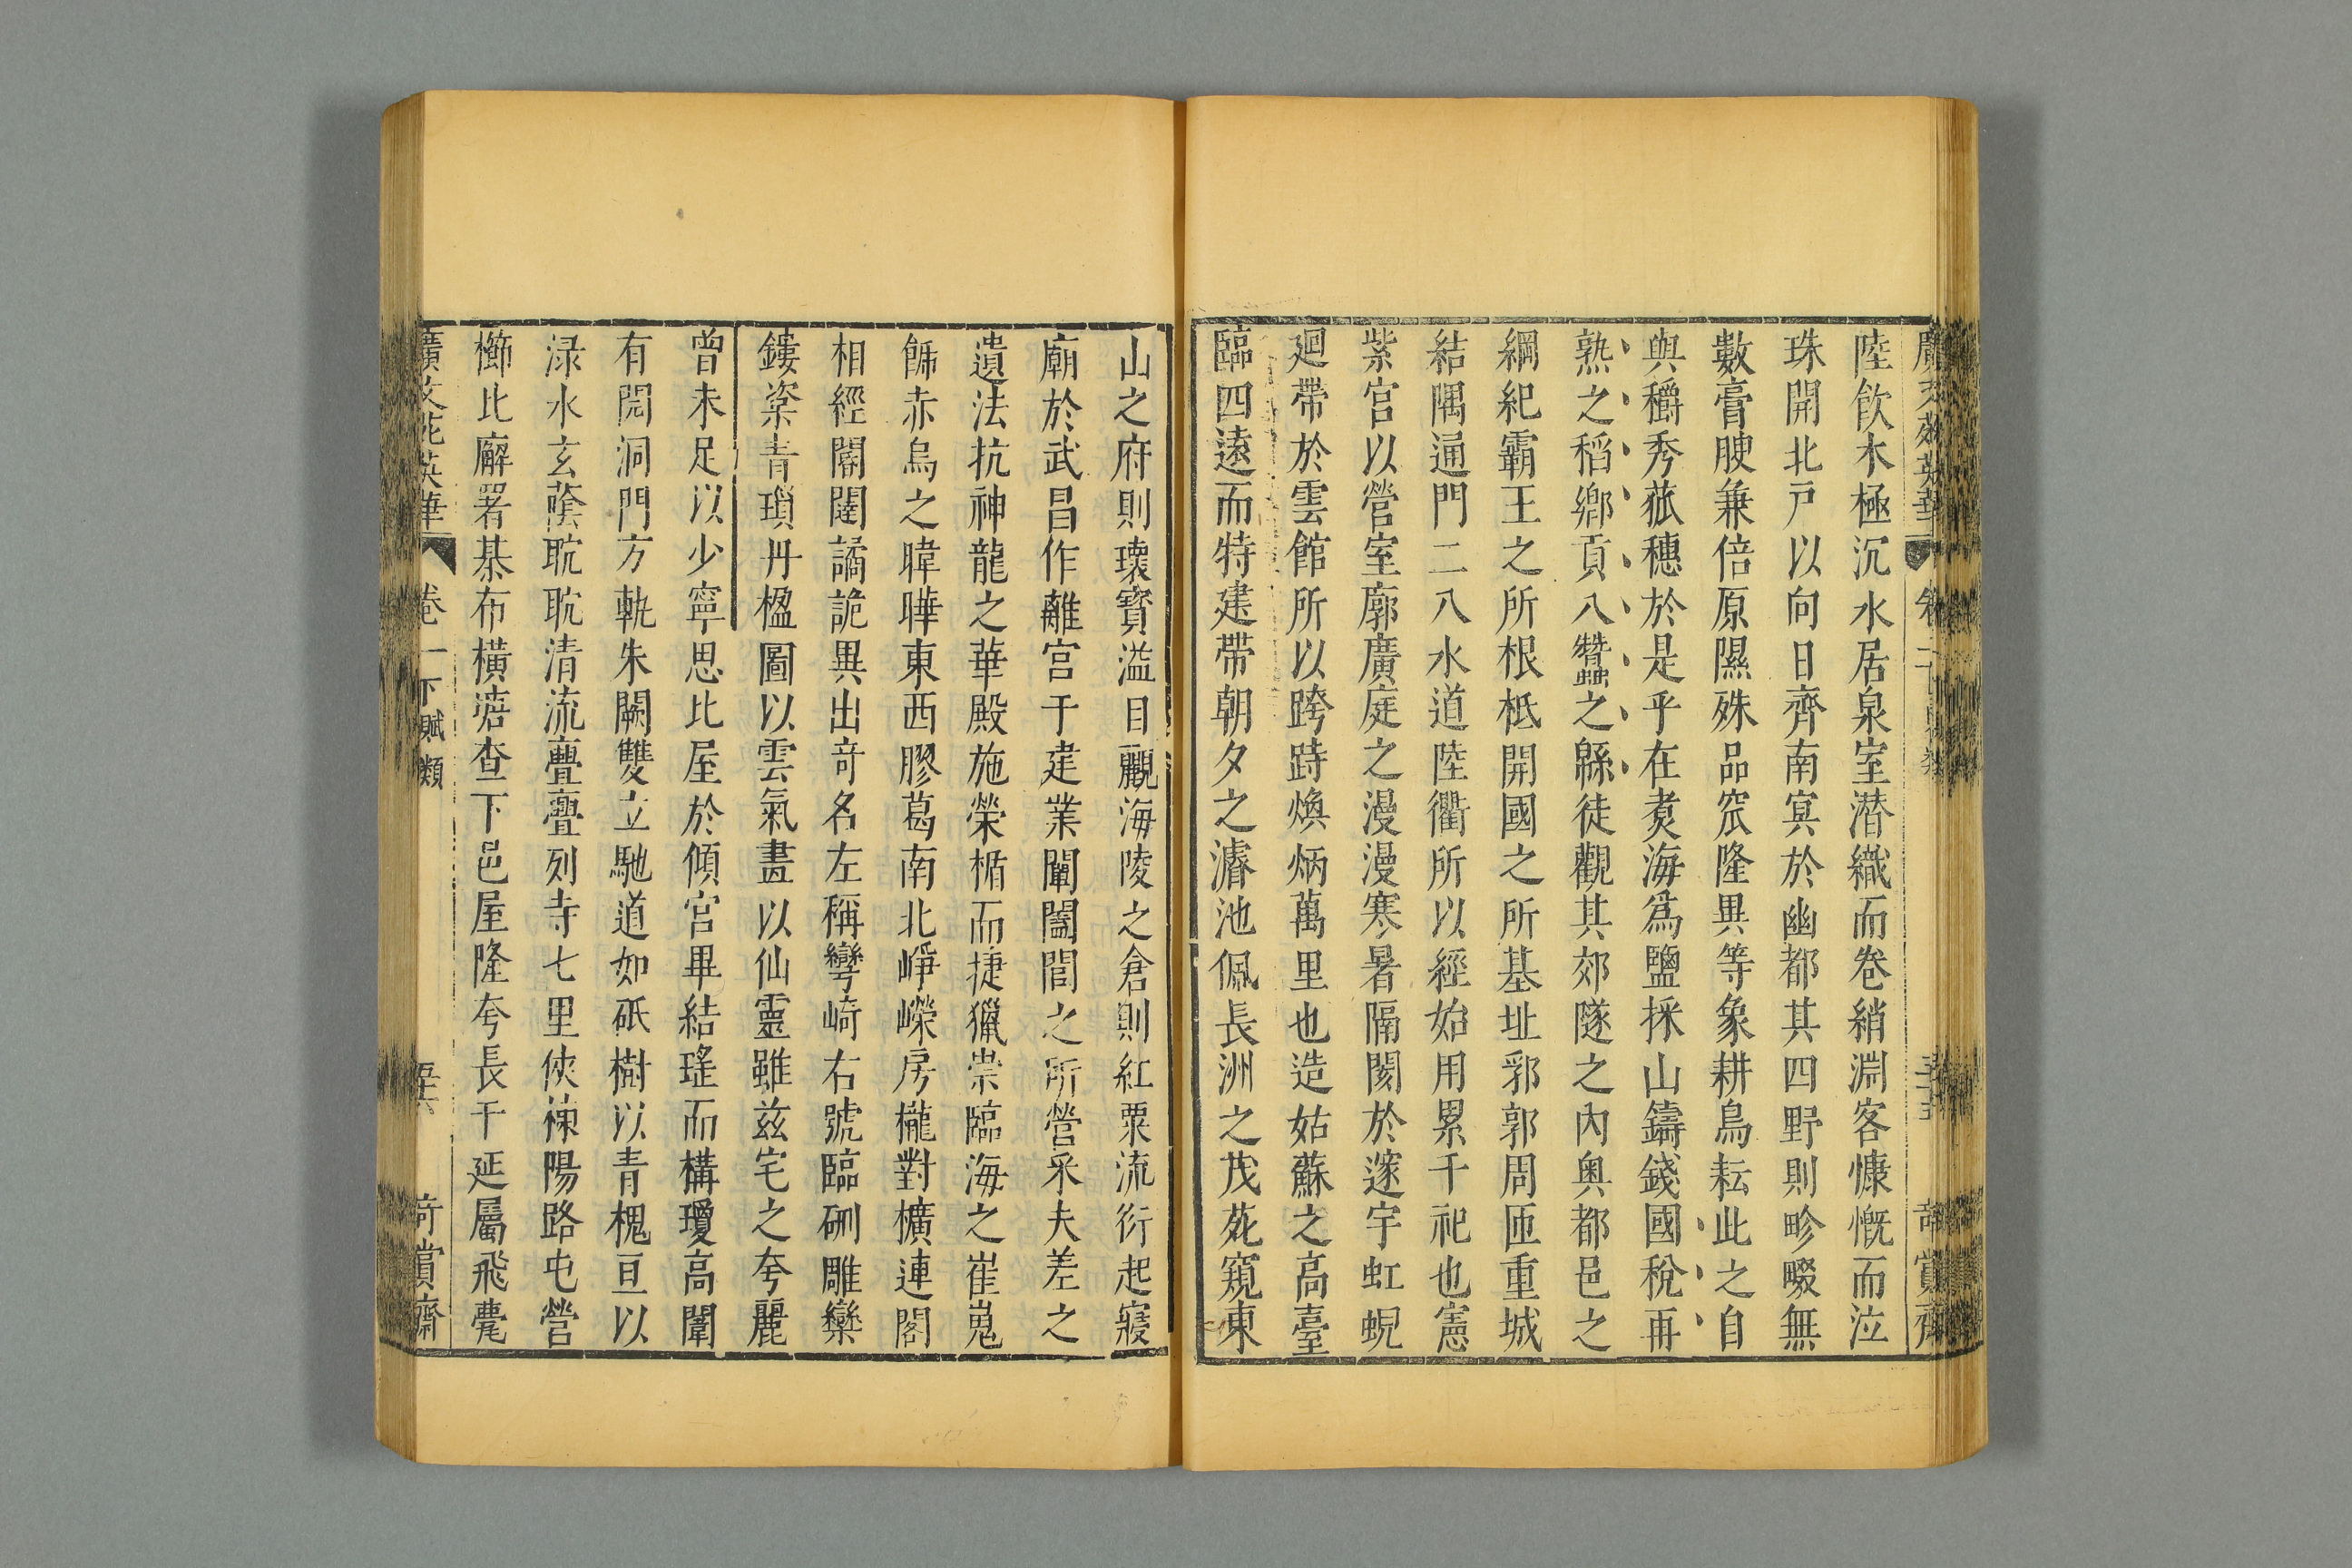 陸飲木極沉水居泉室潛織而卷綃淵客慷慨而泣
珠開北戸以向日齊南㝠於幽都其四野則畛畷無
數膏腴兼倍原隰殊品窊隆異等象耕鳥耘此之自
與穱秀菰穗於是乎在煑海爲鹽採山鑄錢國稅再
熟之稻鄉貢八蠶之緜徒觀其郊隧之內奥都邑之
綱紀霸王之所根柢開國之所基址郛郭周匝重城
結隅通門二八水道陸衢所以經始用累千祀也憲
紫宮以營室廓廣庭之漫漫寒暑隔閡於邃宇虹蜺
廻帶於雲館所以跨跱煥炳萬里也造姑蘇之高臺
臨四遠而特建帶朝夕之濬池佩長洲之茂苑窺東
山之府則瓌寶溢目覼海陵之倉則紅粟流衍起寢
廟於武昌作離宮于建業闡闔閭之所營采夫差之
遺法抗神龍之華殿施榮楯而捷獵崇臨海之崔嵬
飾赤烏之暐曄東西膠葛南北崢嶸房櫳對櫎連閣
相經閽闥譎詭異出奇名左稱彎崎右號臨硎雕欒
鏤楶青瑣丹楹圖以雲氣畫以仙靈雖茲宅之夸麗
曾未足以少寧思比屋於傾宮畢結瑤而構瓊高闈
有閌洞門方軌朱闕雙立馳道如砥樹以青槐亘以
淥水玄蔭耽耽清流亹亹列寺七里俠棟陽路屯營
櫛比廨署棊布橫塘查下邑屋隆夸長干延屬飛甍
廣文苑英華 卷一下 賦類 至六 奇賞齋